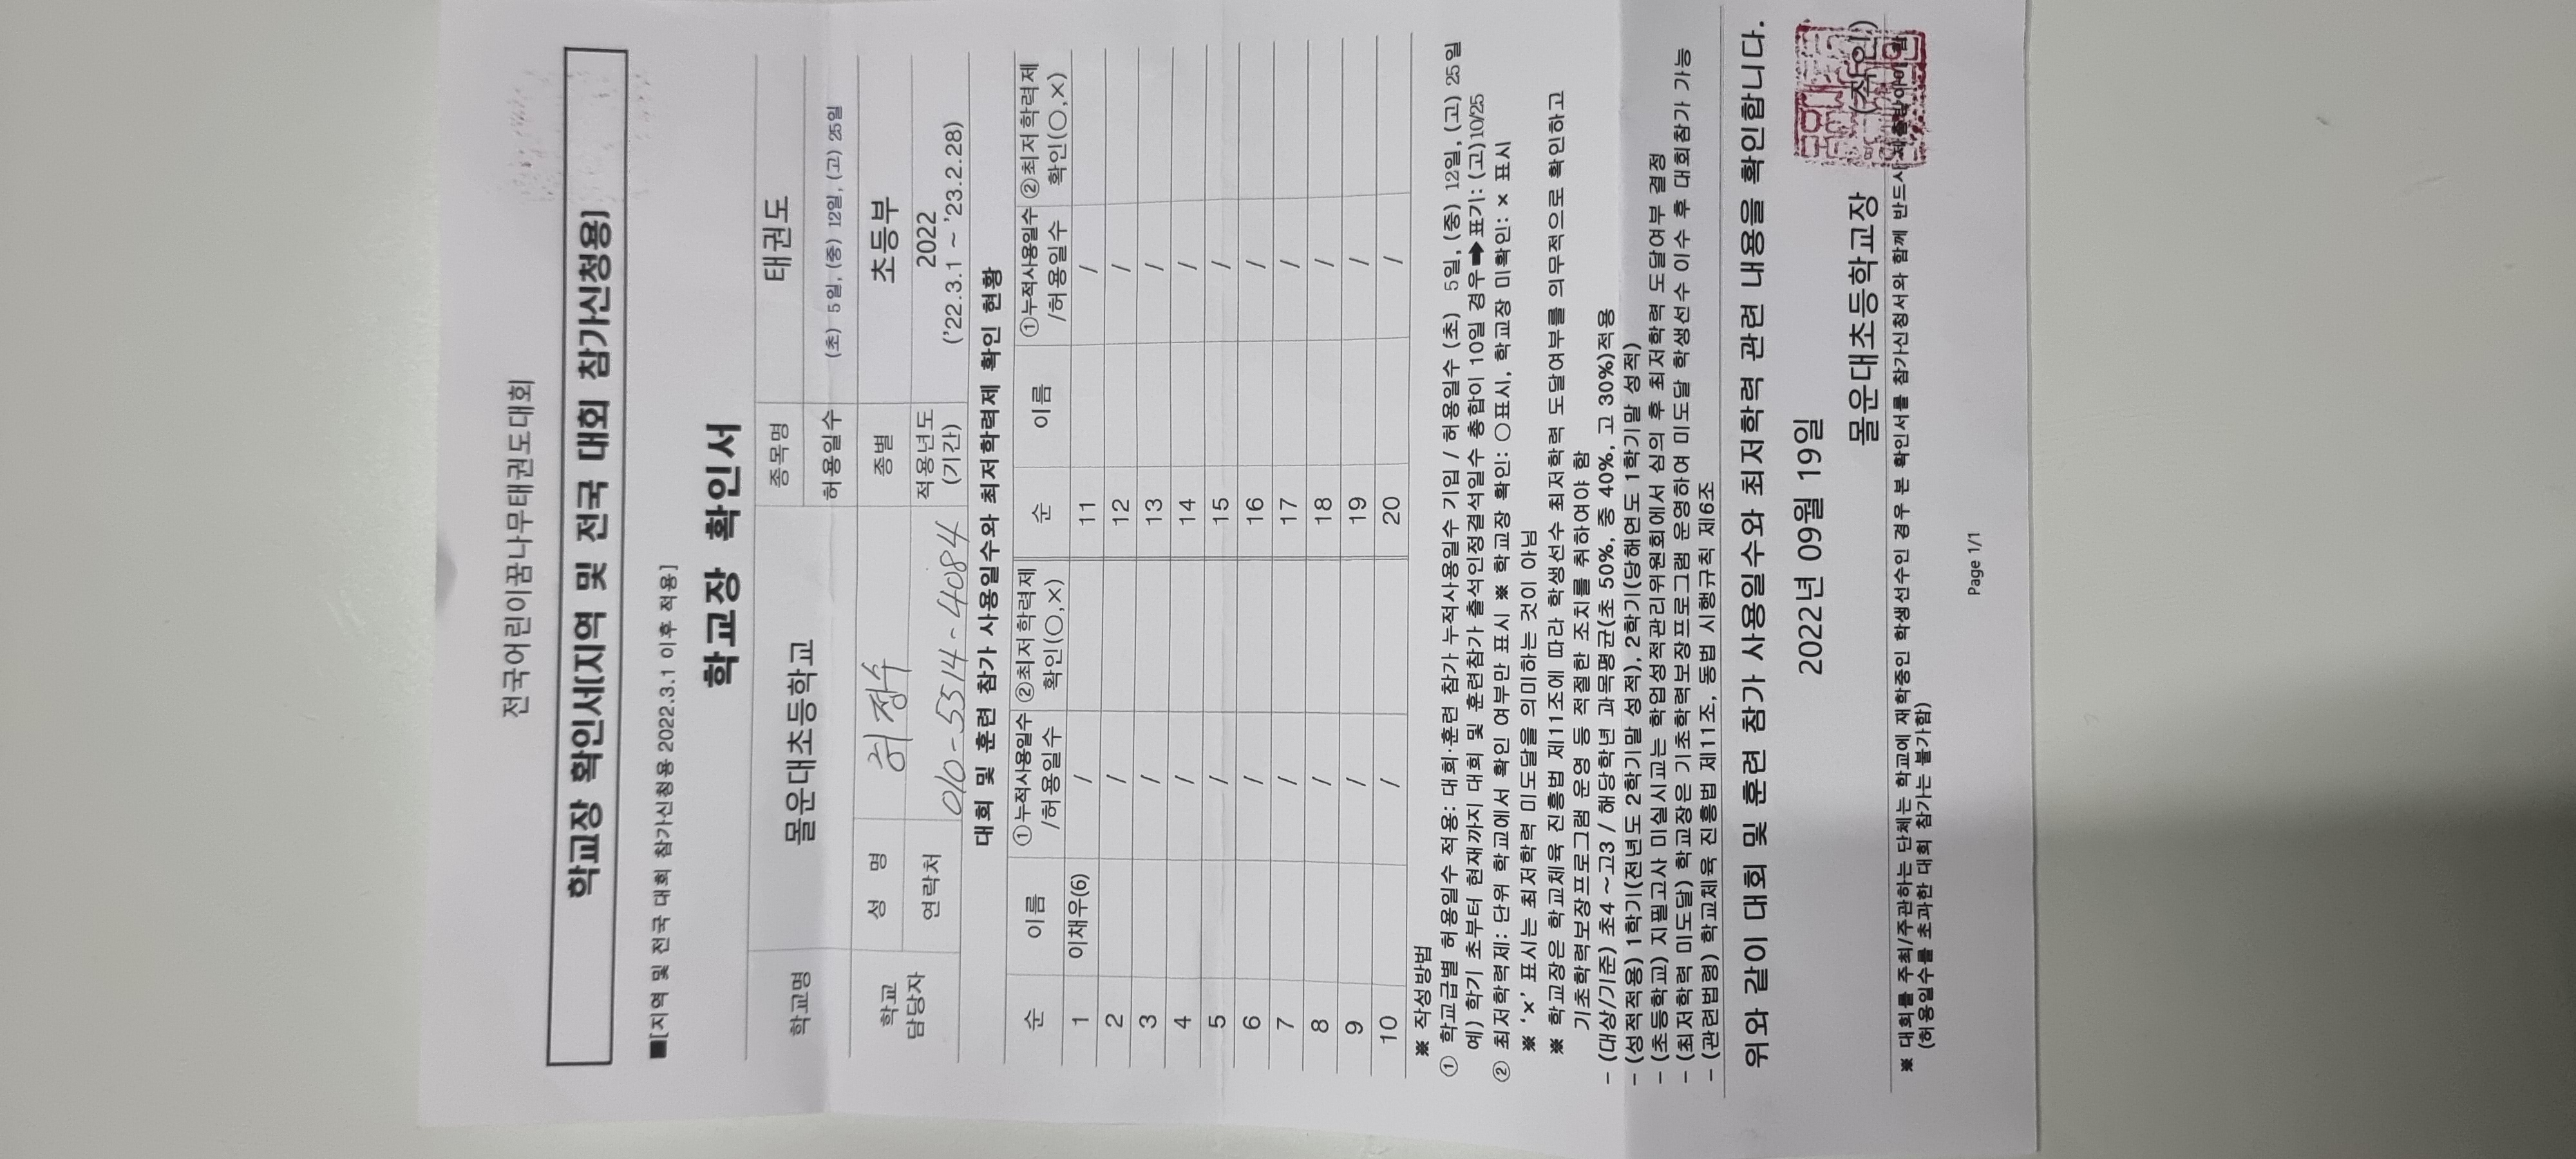 전국어린이꿈나무태권도대회
학교장 확인서(지역 및 전국 대회 참가신청용)
■[지역 및 전국 대회 참가신청용 2022.3.1 이후 적용]
학교장 확인서
학교명 몰운대초등학교 종목명 태권도
허용일수 (초) 5일, (중) 12일, (고) 25일
학교 담당자 성 명 허정수 종별 초등부
연락처 010-5514-4084 적용년도 (기간) 2022 ('22.3.1 ~ '23.2.28)
대회 및 훈련 참가 사용일수와 최저학력제 확인 현황
순 이름 ①누적사용일수 /허용일수 ②최저학력제 확인(○,×) 순 이름 ①누적사용일수 /허용일수 ②최저학력제 확인(○,×)
1 이채우(6) / 11 /
2 / 12 /
3 / 13 /
4 / 14 /
5 / 15 /
6 / 16 /
7 / 17 /
8 / 18 /
9 / 19 /
10 / 20 /
※ 작성방법
① 학교급별 허용일수 적용: 대회·훈련 참가 누적사용일수 기입 / 허용일수 (초) 5일, (중) 12일, (고) 25일
예) 학기 초부터 현재까지 대회 및 훈련참가 출석인정결석일수 총합이 10일 경우➡표기: (고)10/25
② 최저학력제: 단위 학교에서 확인 여부만 표시 ※ 학교장 확인: ○표시, 학교장 미확인: × 표시
※ '×' 표시는 최저학력 미도달을 의미하는 것이 아님
※ 학교장은 학교체육 진흥법 제11조에 따라 학생선수 최저학력 도달여부를 의무적으로 확인하고
기초학력보장프로그램 운영 등 적절한 조치를 취하여야 함
- (대상/기준) 초4 ~ 고3 / 해당학년 과목평균(초 50%, 중 40%, 고 30%)적용
- (성적적용) 1학기(전년도 2학기말 성적), 2학기(당해연도 1학기말 성적)
- (초등학교) 지필고사 미실시교는 학업성적관리위원회에서 심의 후 최저학력 도달여부 결정
- (최저학력 미도달) 학교장은 기초학력보장프로그램 운영하여 미도달 학생선수 이수 후 대회참가 가능
- (관련법령) 학교체육 진흥법 제11조, 동법 시행규칙 제6조
위와 같이 대회 및 훈련 참가 사용일수와 최저학력 관련 내용을 확인합니다.
2022년 09월 19일
몰운대초등학교장 (직인)
※ 대회를 주최/주관하는 단체는 학교에 재학중인 학생선수인 경우 본 확인서를 참가신청서와 함께 반드시 제출받아야 함
(허용일수를 초과한 대회 참가는 불가함)
Page 1/1